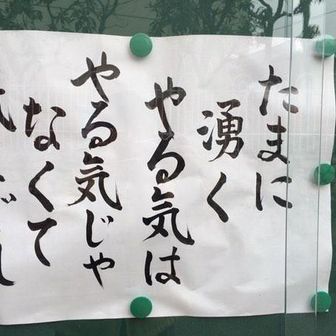 たまに
湧く
やる気は
やる気じゃ
なくて